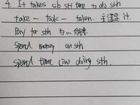 4. It takes sb sth time to do sth
take - took - taken
Pay for sth
Spend money on sth
Spend time (in) doing sth